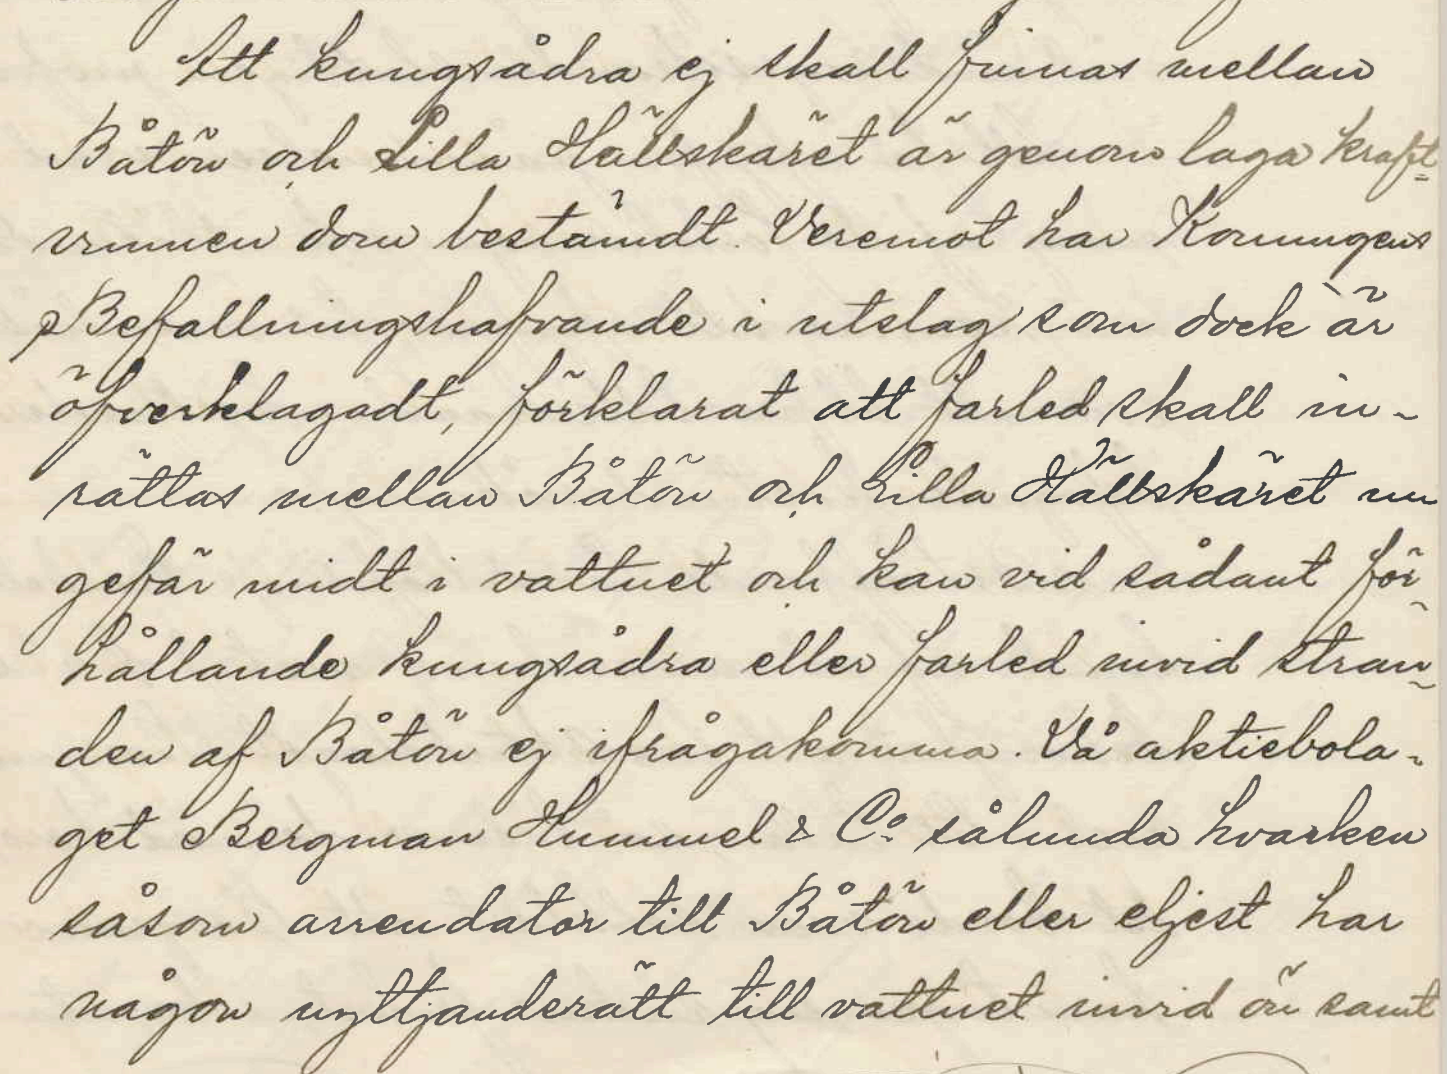 Att kungsådra ej skall finnas mellan
Båtön och Lilla Hällskäret är genom laga kraft-
vunnen dom bestämdt. Deremot har Konungens
Befallningshafvande i utslag som dock är
öfverklagadt, förklarat att farled skall in-
rättas mellan Båtön och Lilla Hällskäret un
gefär midt i vattnet och kan vid sådant för-
hållande kungsådra eller farled invid stran-
den af Båtön ej ifrågakomma. Då aktiebola-
get Bergman Hummel & Co. sålunda hvarken
såsom arrendator till Båtön eller eljest har
någon nyttjanderätt till vattnet invid ön samt